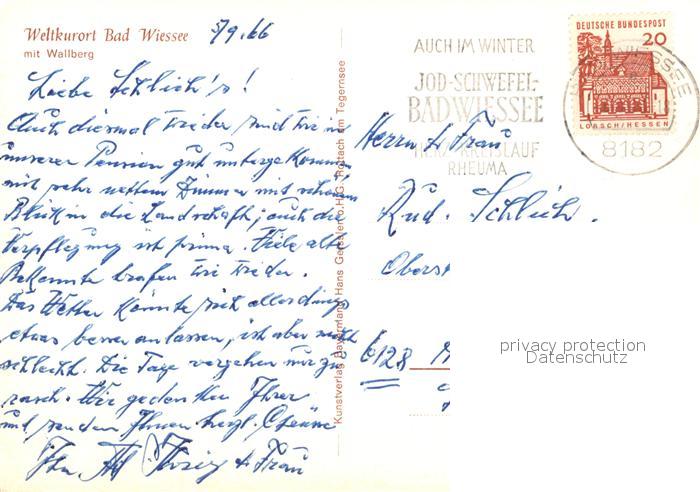 Weltkurort Bad Wiessee
mit Wallberg
5/9.66
Liebe Schlich's!
Auch diesmal wieder sind wir in
unserer Pension gut untergekommen,
mit sehr nettem Zimmer mit schönem
Blick in die Landschaft; auch die
Verpflegung ist prima. Viele alte
Bekannte trafen wir wieder.
Das Wetter könnte sich allerdings
etwas besser anlassen, ist aber nicht
schlecht. Die Tage vergehen nur zu
rasch. Wir gedenken Ihrer
und senden Ihnen herzl. Grüsse
Ihr
u. Frau
Kunstverlag Hans
Rottach am Tegernsee
AUCH IM WINTER
JOD-SCHWEFEL-
BAD WIESSEE
HERZ KREISLAUF
RHEUMA
DEUTSCHE BUNDESPOST
20
LORSCH/HESSEN
8182
Herrn u. Frau
Rud. Schlich.
6128
privacy protection
Datenschutz